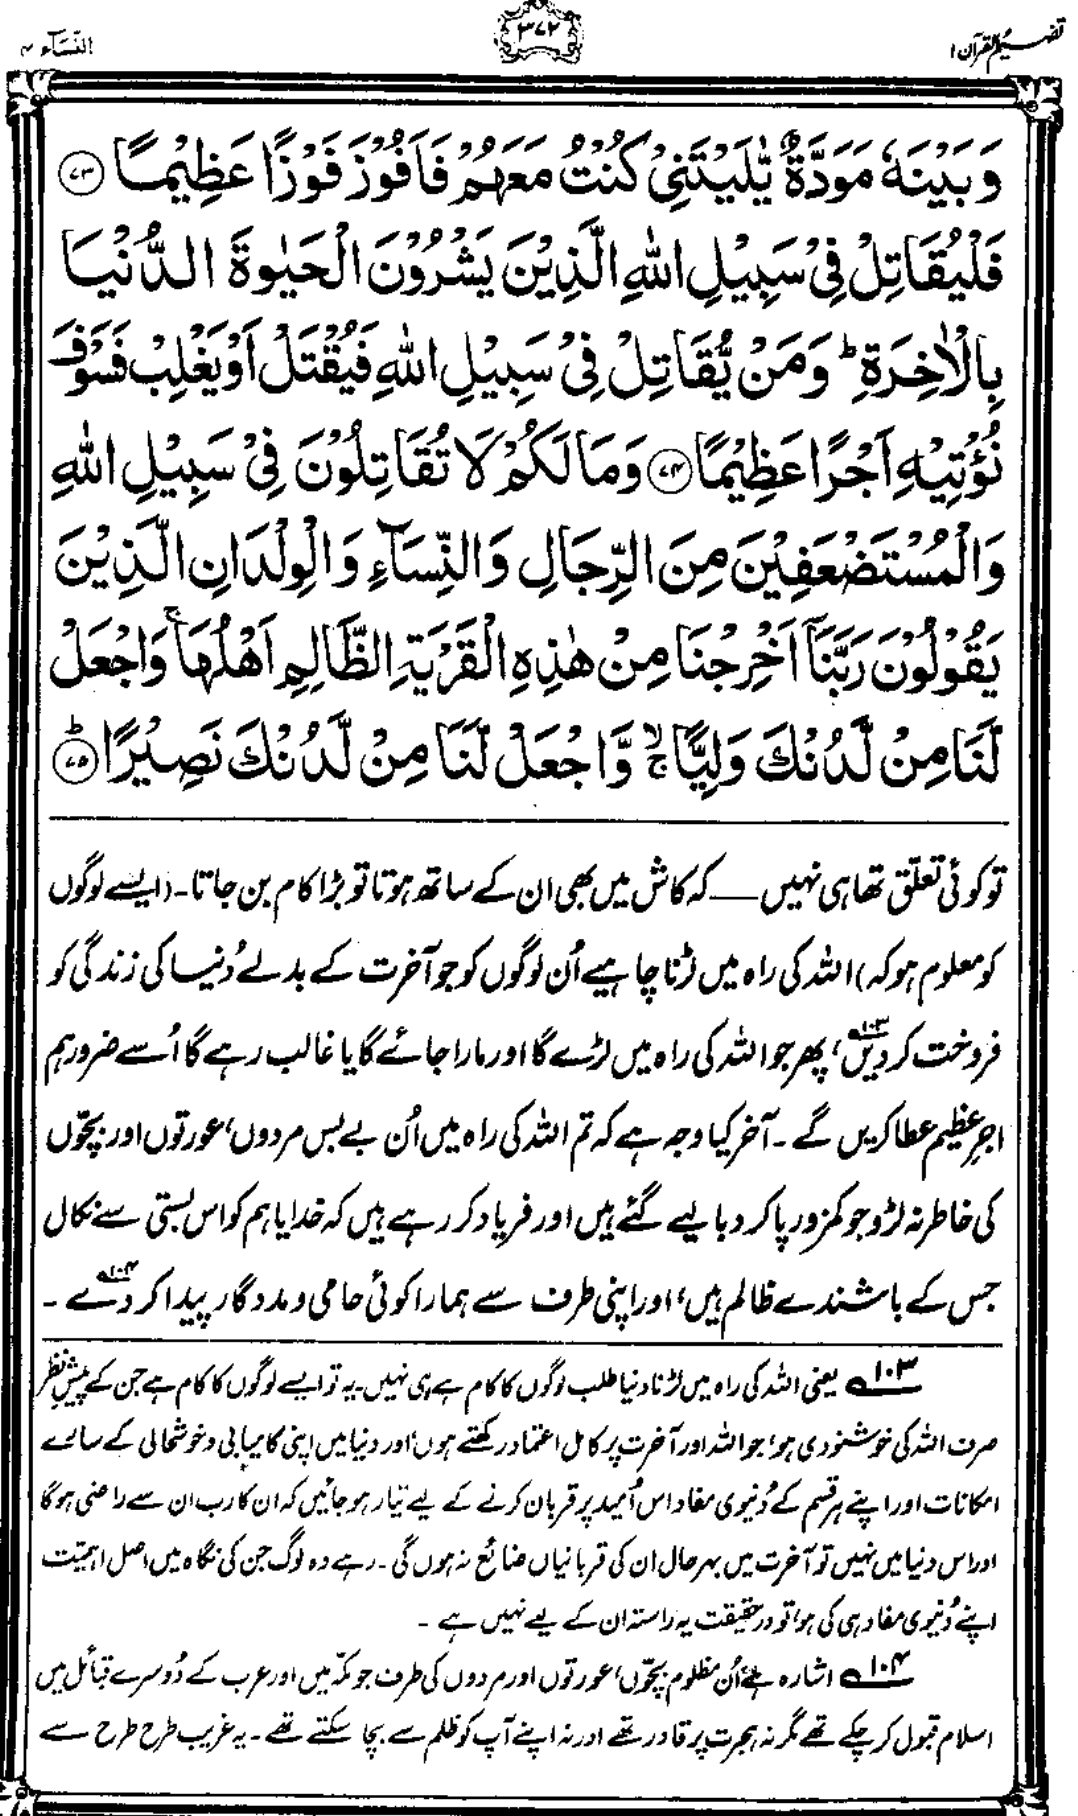 تفہیم القرآن ۱
۳۷۲
النّسَآء ۴
وَبَيْنَهٗ مَوَدَّةٌ يّٰلَيْتَنِيْ كُنْتُ مَعَهُمْ فَاَفُوْزَ فَوْزًا عَظِيْمًا ﴿۷۳﴾
فَلْيُقَاتِلْ فِيْ سَبِيْلِ اللّٰهِ الَّذِيْنَ يَشْرُوْنَ الْحَيٰوةَ الدُّنْيَا
بِالْاٰخِرَةِ ؕ وَمَنْ يُّقَاتِلْ فِيْ سَبِيْلِ اللّٰهِ فَيُقْتَلْ اَوْ يَغْلِبْ فَسَوْفَ
نُؤْتِيْهِ اَجْرًا عَظِيْمًا ﴿۷۴﴾ وَمَا لَكُمْ لَا تُقَاتِلُوْنَ فِيْ سَبِيْلِ اللّٰهِ
وَالْمُسْتَضْعَفِيْنَ مِنَ الرِّجَالِ وَالنِّسَآءِ وَالْوِلْدَانِ الَّذِيْنَ
يَقُوْلُوْنَ رَبَّنَآ اَخْرِجْنَا مِنْ هٰذِهِ الْقَرْيَةِ الظَّالِمِ اَهْلُهَا ۚ وَاجْعَلْ
لَّنَا مِنْ لَّدُنْكَ وَلِيًّا ۙۚ وَّاجْعَلْ لَّنَا مِنْ لَّدُنْكَ نَصِيْرًا ؕ﴿۷۵﴾
تو کوئی تعلّق تھا ہی نہیں ــــ کہ کاش میں بھی ان کے ساتھ ہوتا تو بڑا کام بن جاتا۔ (ایسے لوگوں
کو معلوم ہو کہ) اللہ کی راہ میں لڑنا چاہیے اُن لوگوں کو جو آخرت کے بدلے دُنیا کی زندگی کو
فروخت کر دیں۱۰۳، پھر جو اللہ کی راہ میں لڑے گا اور مارا جائے گا یا غالب رہے گا اُسے ضرور ہم
اجرِ عظیم عطا کریں گے۔ آخر کیا وجہ ہے کہ تم اللہ کی راہ میں اُن بے بس مردوں، عورتوں اور بچّوں
کی خاطر نہ لڑو جو کمزور پا کر دبا لیے گئے ہیں اور فریاد کر رہے ہیں کہ خدایا ہم کو اس بستی سے نکال
جس کے باشندے ظالم ہیں، اور اپنی طرف سے ہمارا کوئی حامی و مددگار پیدا کر دے۱۰۴۔
۱۰۳ یعنی اللہ کی راہ میں لڑنا دنیا طلب لوگوں کا کام ہے ہی نہیں۔ یہ تو ایسے لوگوں کا کام ہے جن کے پیشِ نظر
صرف اللہ کی خوشنودی ہو، جو اللہ اور آخرت پر کامل اعتماد رکھتے ہوں، اور دنیا میں اپنی کامیابی و خوشحالی کے سارے
امکانات اور اپنے ہر قسم کے دُنیوی مفاد اس اُمید پر قربان کرنے کے لیے تیار ہو جائیں کہ ان کا رب ان سے راضی ہوگا
اور اس دنیا میں نہیں تو آخرت میں بہرحال ان کی قربانیاں ضائع نہ ہوں گی۔ رہے وہ لوگ جن کی نگاہ میں اصل اہمیّت
اپنے دُنیوی مفاد ہی کی ہو، تو درحقیقت یہ راستہ ان کے لیے نہیں ہے۔
۱۰۴ اشارہ ہے اُن مظلوم بچّوں، عورتوں اور مردوں کی طرف جو مکّہ میں اور عرب کے دُوسرے قبائل میں
اسلام قبول کر چکے تھے مگر نہ ہجرت پر قادر تھے اور نہ اپنے آپ کو ظلم سے بچا سکتے تھے۔ یہ غریب طرح طرح سے